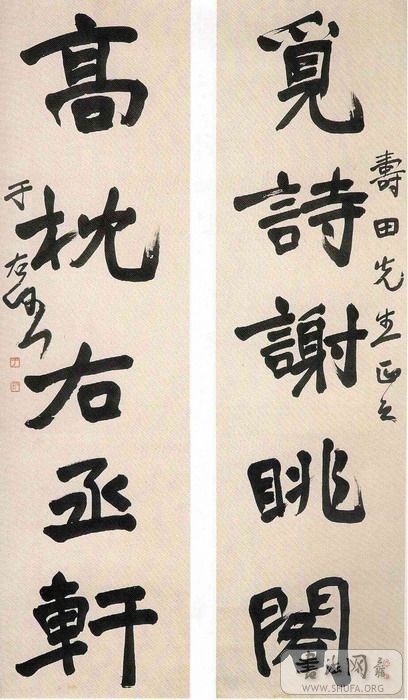 壽田先生正之
覓詩謝眺閣
高枕右丞軒
于右任
WWW.SHUFA.ORG